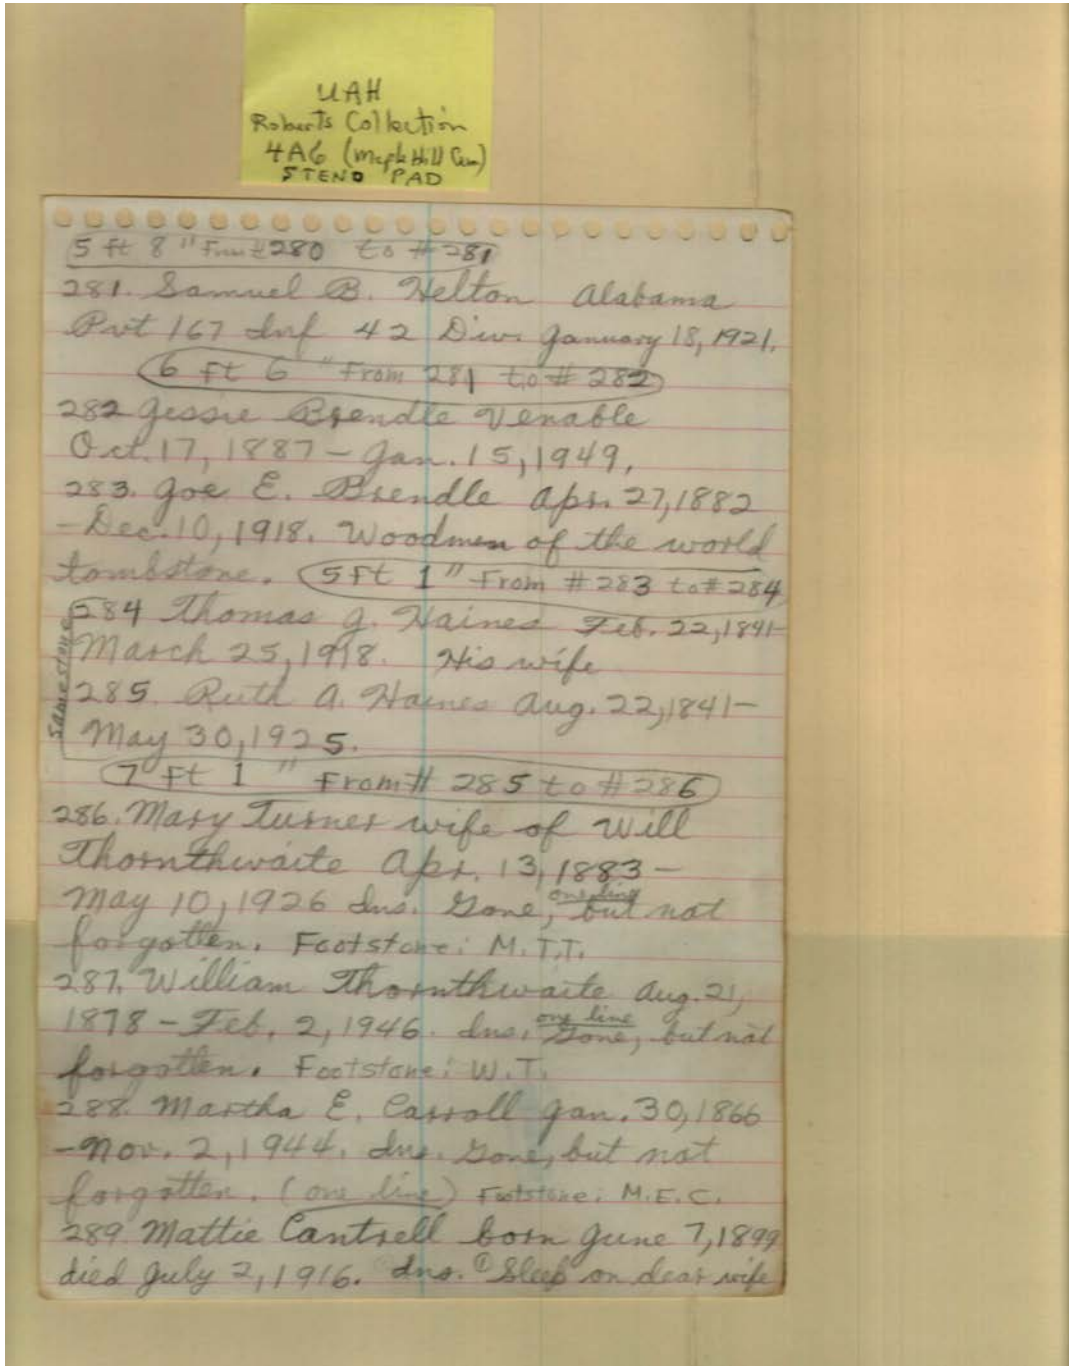 UAH
Roberts Collection
4A6 (Maple Hill Cem)
STENO PAD
5 ft 8" From #280 to #281
281. Samuel B. Helton Alabama
Pvt 167 Inf 42 Div. January 18, 1921.
6 ft 6" From 281 to #282
282 Jessie Brendle Venable
Oct. 17, 1887 – Jan. 15, 1949.
283. Joe E. Brendle Apr. 27, 1882
– Dec. 10, 1918. Woodmen of the world
tombstone. 5 Ft 1" From #283 to #284
284 Thomas J. Haines Feb. 22, 1841–
March 25, 1918. His wife
285. Ruth A. Haines Aug. 22, 1841–
May 30, 1925.
same stone
7 Ft 1" From # 285 to #286
286. Mary Turner wife of Will
Thornthwaite Apr. 13, 1883 –
one line
May 10, 1926 Ins. Gone, but not
forgotten. Footstone: M.T.T.
287. William Thornthwaite Aug. 21,
one line
1878 – Feb. 2, 1946. Ins. Gone, but not
forgotten. Footstone: W.T.
288. Martha E. Carroll Jan. 30, 1866
– Nov. 2, 1944. Ins. Gone, but not
forgotten. (one line) Footstone: M.E.C.
289. Mattie Cantrell born June 7, 1899
died July 2, 1916. Ins. ① Sleep on dear wife